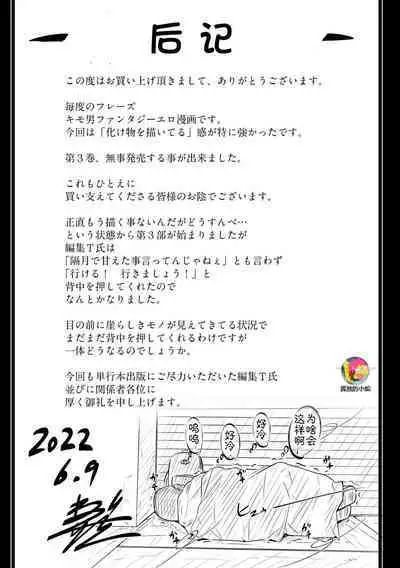 后记
この度はお買い上げ頂きまして、ありがとうございます。
毎度のフレーズ
キモ男ファンタジーエロ漫画です。
今回は「化け物を描いてる」感が特に強かったです。
第3巻、無事発売する事が出来ました。
これもひとえに
買い支えてくださる皆様のお陰でございます。
正直もう描く事ないんだがどうすんべ…
という状態から第3部が始まりましたが
編集T氏は
「隔月で甘えた事言ってんじゃねぇ」とも言わず
「行ける！ 行きましょう！」と
背中を押してくれたので
なんとかなりました。
目の前に崖らしきモノが見えてきてる状況で
まだまだ背中を押してくれるわけですが
一体どうなるのでしょうか。
今回も単行本出版にご尽力いただいた編集T氏
並びに関係者各位に
厚く御礼を申し上げます。
孤独的小蛇
为啥会
这样啊
好冷
好冷
呜呜
ビュゥ
2022
6.9